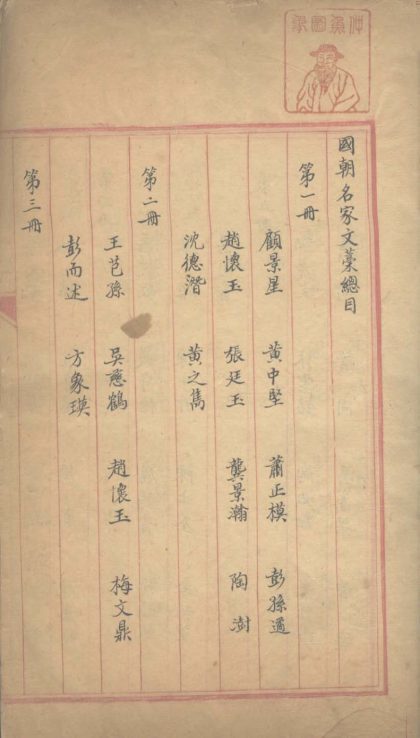 國朝名家文藁總目
第一冊
顧景星 黃中堅 蕭正模 彭孫遹
趙懷玉 張廷玉 龔景瀚 陶澍
沈德潛 黃之雋
第二冊
王芑孫 吳慈鶴 趙懷玉 梅文鼎
彭而述 方象瑛
第三冊